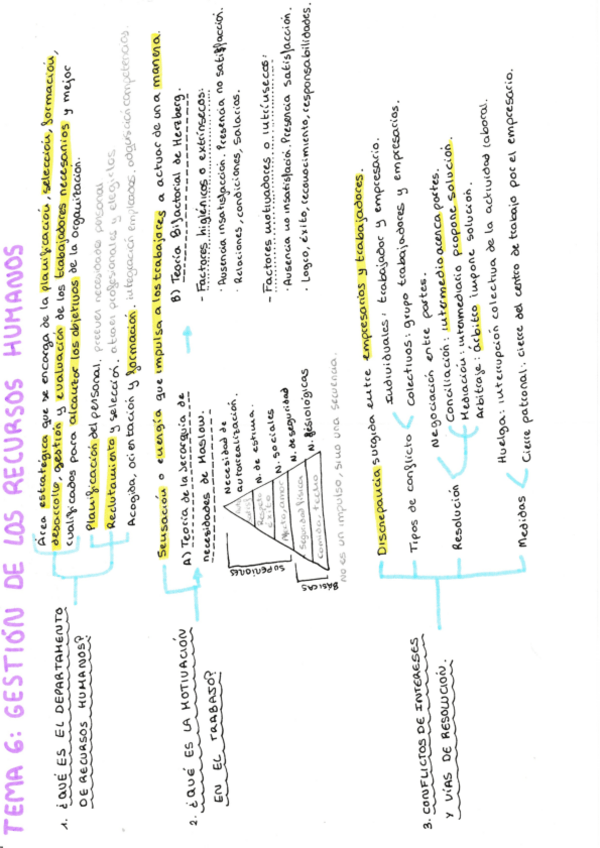 TEMA 6: GESTIÓN DE LOS RECURSOS HUMANOS
1. ¿QUÉ ES EL DEPARTAMENTO
DE RECURSOS HUMANOS?
Área estratégica que se encarga de la planificación, selección, formación,
desarrollo, gestión y evaluación de los trabajadores necesarios y mejor
cualificados para alcanzar los objetivos de la organización.
Planificación del personal, preveer necesidades personal
Reclutamiento y selección. atraer profesionales y elegirlos
Acogida, orientación y formación. integración empleados, adquisición competencias.
2. ¿QUÉ ES LA MOTIVACIÓN
EN EL TRABAJO?
Sensación o energía que impulsa a los trabajores a actuar de una manera.
A) Teoría de la Jerarquía de
necesidades de Maslow.
Necesidad de
autorrealización.
N. de estima.
N. sociales
N. de seguridad
N. fisiológicas
Éxito
Afecto, amor
Seguridad física
Comida, techo
SUPERIORES
BÁSICAS
no es un impulso, sino una secuencia.
B) Teoría Bifactorial de Herzberg.
- Factores higiénicos o extrínsecos:
· Ausencia insatisfacción. Presencia no satisfacción.
· Relaciones, condiciones, salarios.
- Factores motivadores o intrínsecos:
· Ausencia no insatisfació. Presencia satisfacción.
· Logro, éxito, reconocimiento, responsabilidades.
3. CONFLICTOS DE INTERESES
Y VÍAS DE RESOLUCIÓN.
Discrepancia surgida entre empresarios y trabajadores.
Tipos de conflicto
Individuales: trabajador y empresario.
Colectivos: grupo trabajadores y empresarios.
Resolución
Negociación entre partes.
Conciliación: intermedio acerca partes.
Mediación: intermediario propone solución.
Arbitraje: Árbitro impone solución.
Medidas
Huelga: interrupción colectiva de la actividad laboral.
Cierre patronal: cierre del centro de trabajo por el empresario.